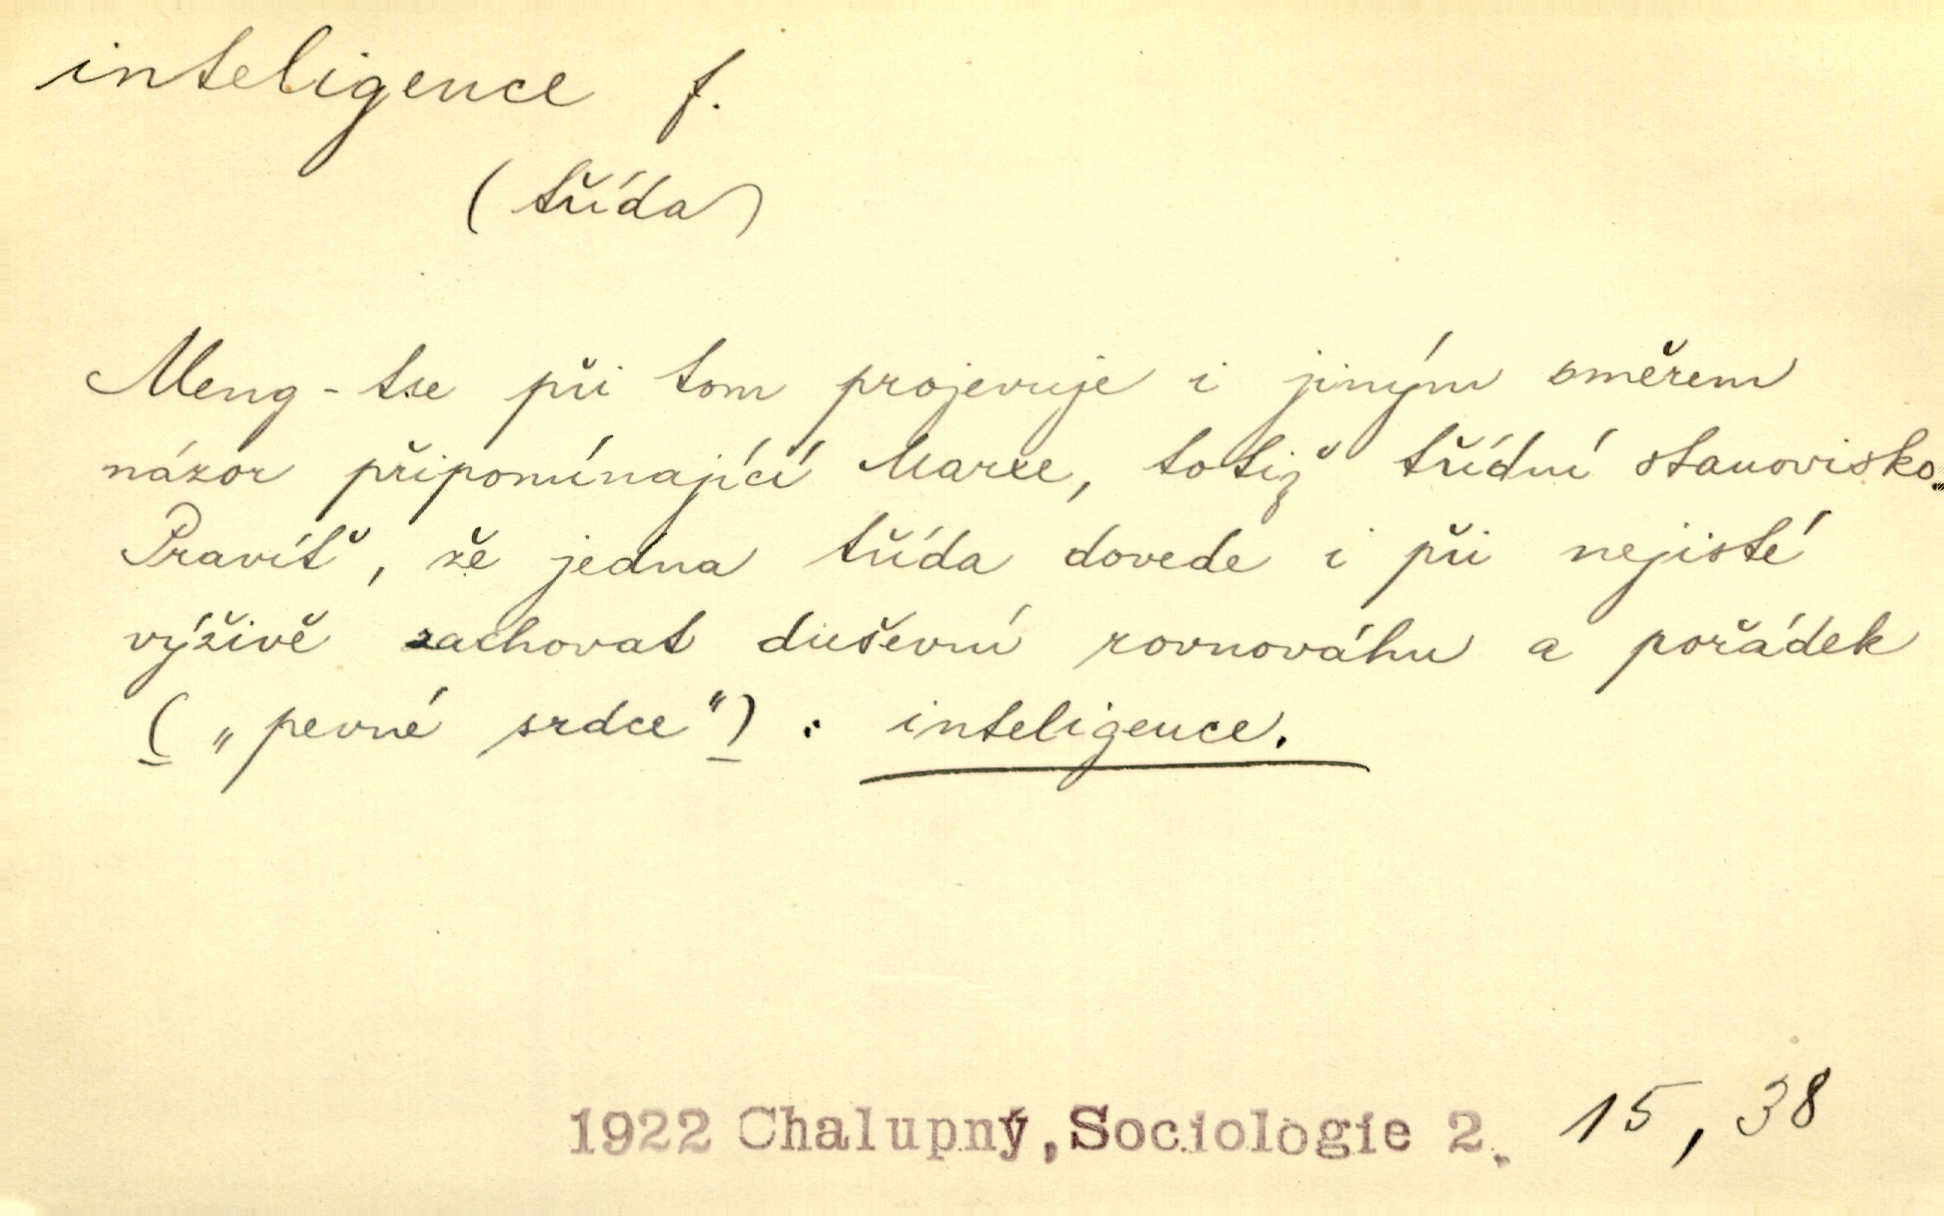 inteligence f.
(třída)
Meng-tse při tom projevuje i jiným směrem
názor připomínající Marxe, totiž třídní stanovisko.
Pravítě, že jedna třída dovede i při nejisté
výživě zachovat duševní rovnováhu a pořádek
(„pevné srdce“): inteligence.
1922 Chalupný, Sociologie 2. 15, 38